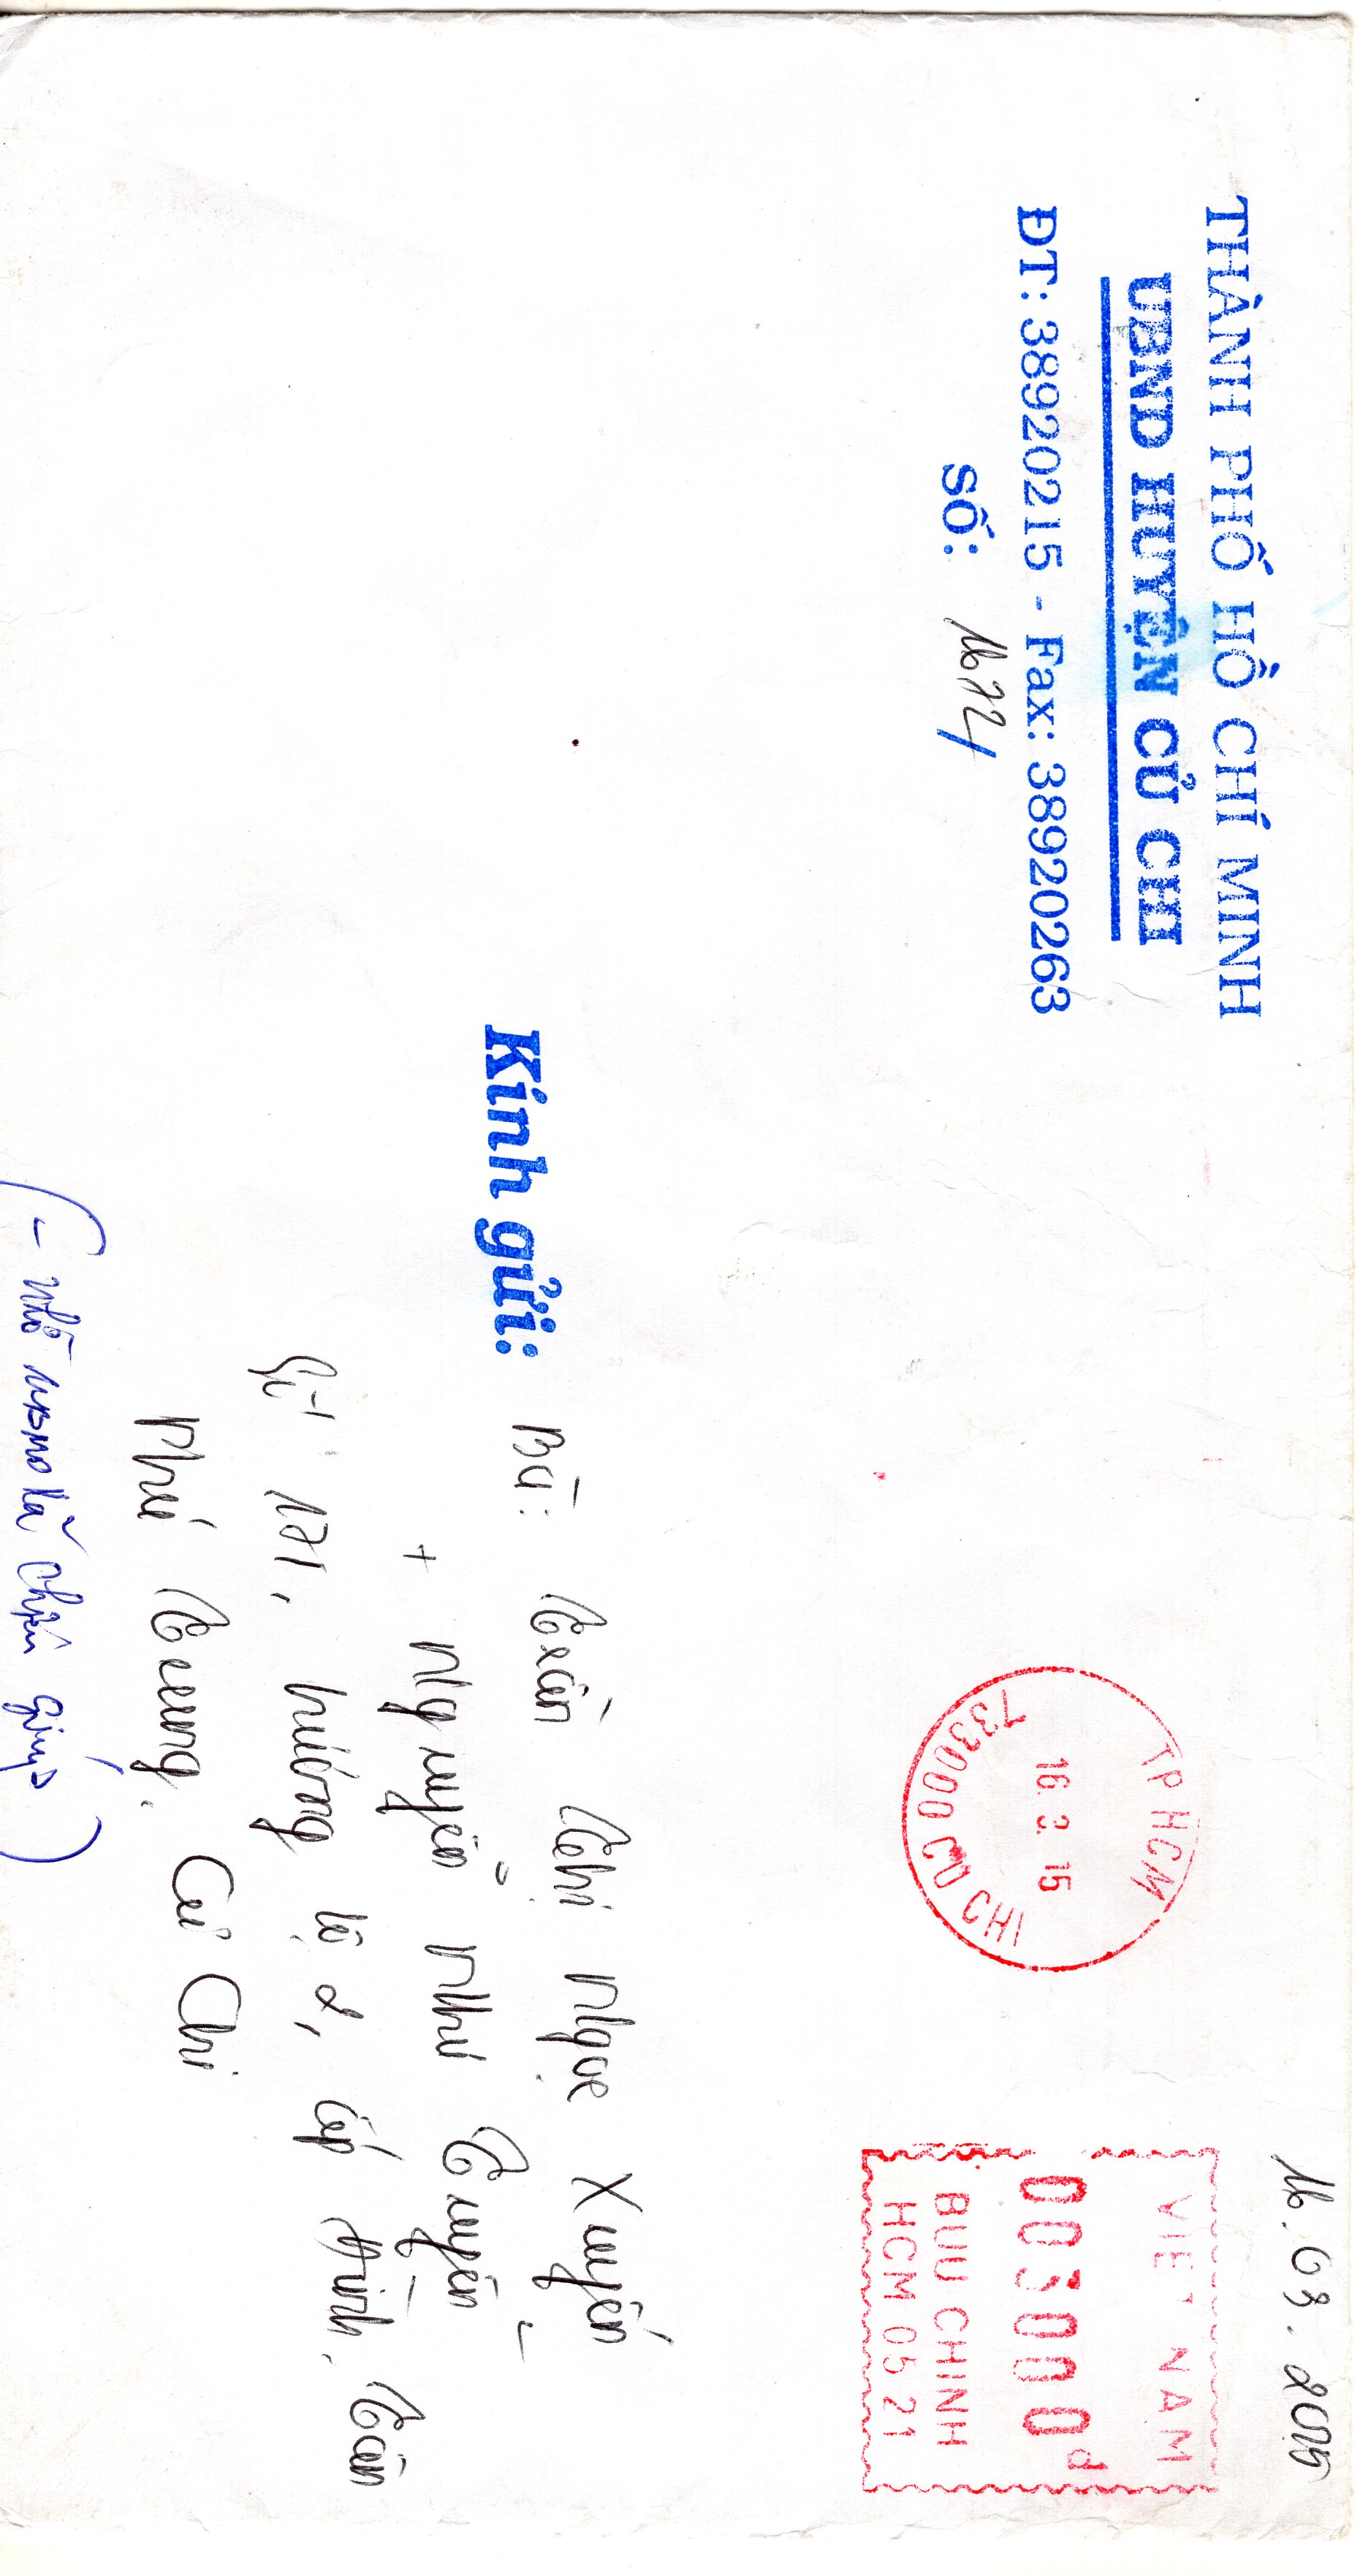 THÀNH PHỐ HỒ CHÍ MINH
UBND HUYỆN CỦ CHI
ĐT: 38920215 - Fax: 38920263
SỐ: 1672
16.03.2015
VIET NAM
003000đ
BUU CHINH
HCM 05 21
TP HCM
16. 3. 15
733000 CU CHI
Kính gửi: Bà: Trần Thị Ngọc Xuyến -
+ Nguyễn Như Truyền
171, hương lộ 2, ấp Đình, Tân
Phú Trung, Củ Chi
(- nhờ UBND Xã chuyển giúp)